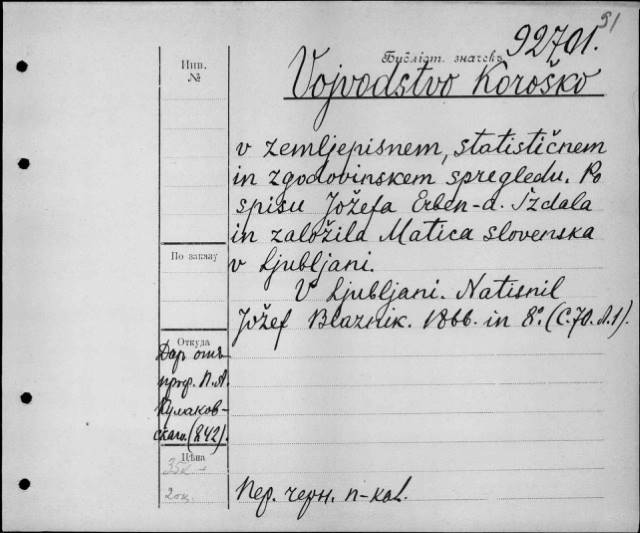 51
92701.
Инв.
№
Библіот. значекъ
Vojvodstvo Koroško
v zemljepisnem, statističnem
in zgodovinskem spregledu. Po
spisu Jožefa Erben-a. Izdala
in založila Matica slovenska
v Ljubljani.
V Ljubljani. Natisnil
Jožef Blaznik. 1866. in 8º. (С. 70. Л. 1).
По заказу
Откуда
Даръ отъ
проф. П. А.
Кулаков-
скаго. (842).
Цѣна
35к
2 оц.
Пер. черн. п-кол.